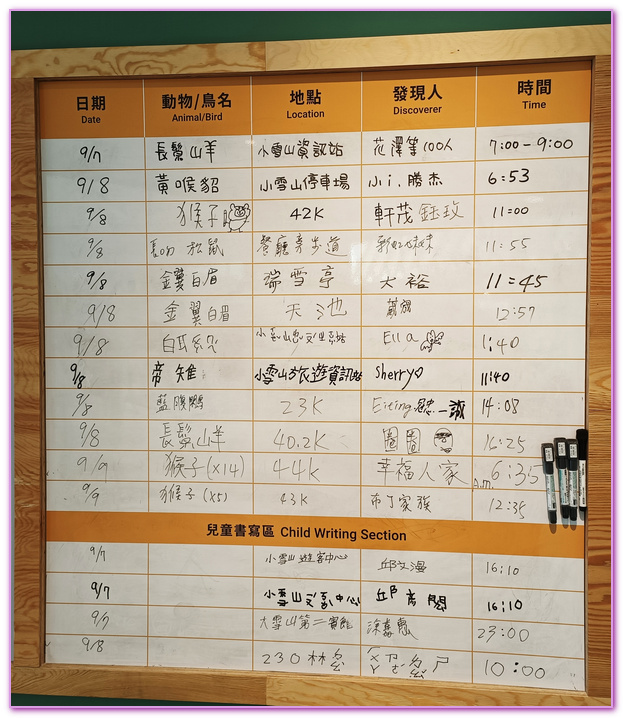 日期 動物/鳥名 地點 發現人 時間
Date Animal/Bird Location Discoverer Time
9/7 長鬃山羊 小雪山資訊站 花澤等100人 7:00-9:00
9/8 黃喉貂 小雪山停車場 小i.勝杰 6:53
9/8 猴子 42K 軒茂鈺玫 11:00
9/8 長吻松鼠 餐廳旁步道 11:55
9/8 金翼白眉 瑞雪亭 大裕 11:45
9/8 金翼白眉 天池 12:57
9/8 小雪山 Ella 1:40
9/8 帝雉 小雪山旅遊資訊站 Sherry♡ 11:40
9/8 藍腹鷴 23K Eiting 14:08
9/8 長鬃山羊 40.2K 圈圈 16:25
9/9 猴子(x14) 44K 幸福人家 A.m. 6:35
9/9 猴子(x5) 43K 布丁家族 12:35
兒童書寫區 Child Writing Section
9/7 小雪山遊客中心 邱 16:10
9/7 小雪山 中心 邱 16:10
9/7 大雪山第二賓館 23:00
9/8 230林 10:00